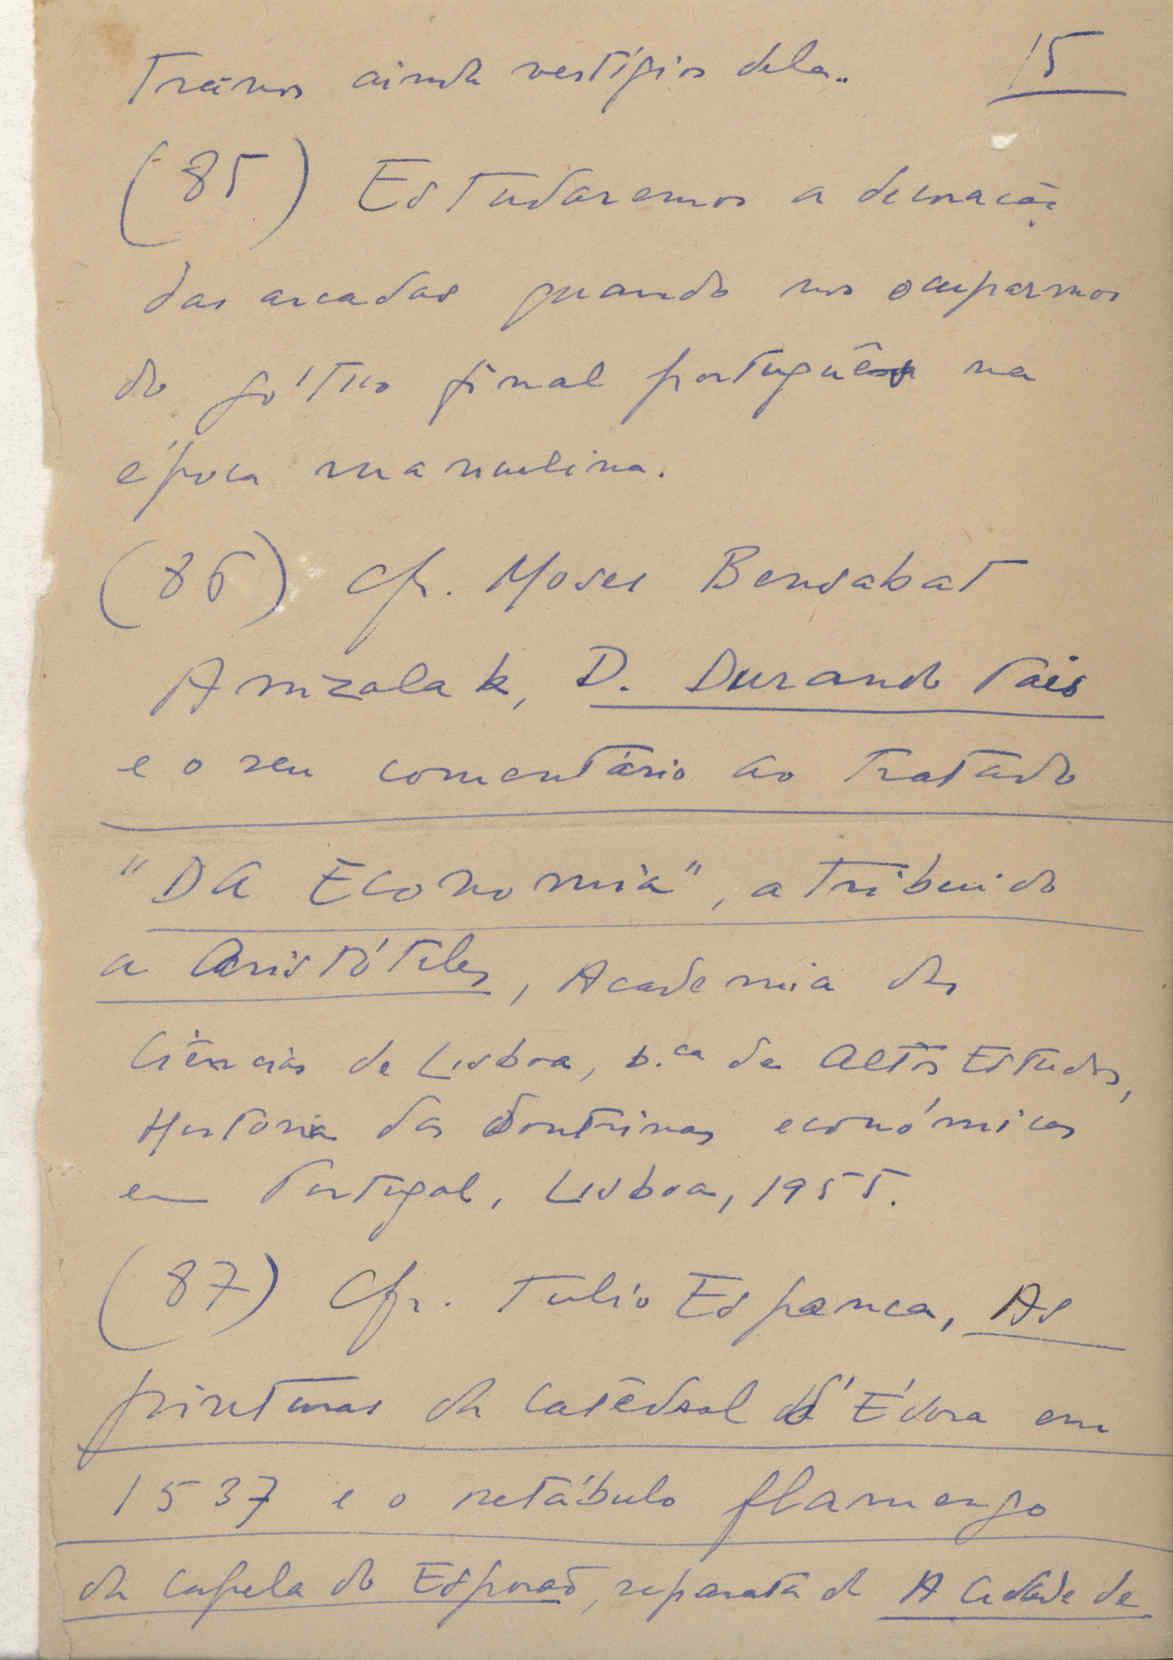 15
ainda vestígios dela..
(85) Estudaremos a decoração
das arcadas quando nos ocuparmos
do gótico final português na
época manuelina.
(86) Cfr. Moses Bensabat
Amzalak, D. Durando Pais
e o seu comentário ao tratado
"DA Economia", atribuido
a Aristóteles, Academia das
Ciências de Lisboa, b.ca de Altos Estudos,
Historia das doutrinas económicas
em Portugal, Lisboa, 1955.
(87) Cfr. Tulio Espanca, As
pinturas da catedral d'Évora em
1537 e o retábulo flamengo
da capela do Esporão, separata de A Cidade de